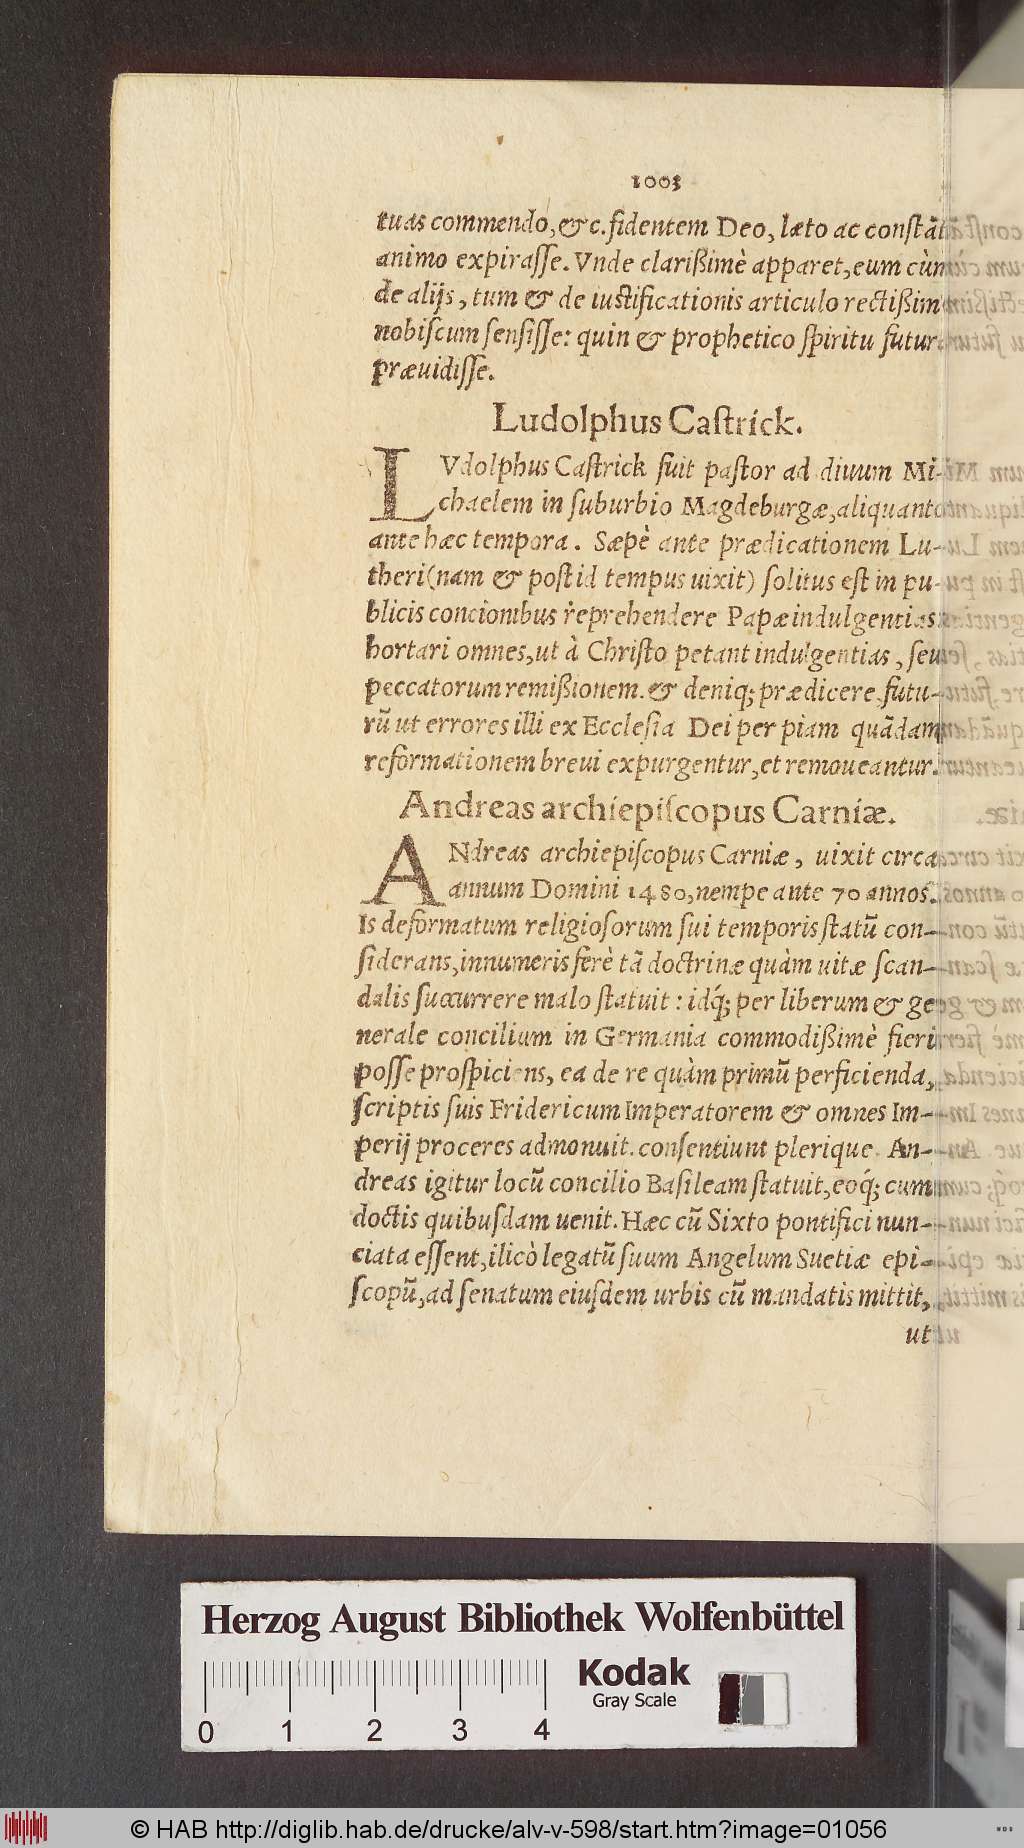 1003
tuas commendo, &c. fidentem Deo, læto ac conſtãti
animo expiraſſe. Vnde clarißimè apparet, eum cùm
de alijs, tum & de iuſtificationis articulo rectißimè
nobiſcum ſenſiſſe: quin & prophetico ſpiritu futura
præuidiſſe.
Ludolphus Caſtrick.
LVdolphus Caſtrick fuit paſtor ad diuum Mi-
chaelem in ſuburbio Magdeburgæ, aliquanto
ante hæc tempora. Sæpè ante prædicationem Lu-
theri (nam & poſt id tempus uixit) ſolitus eſt in pu-
blicis concionibus reprehendere Papæ indulgentias:
hortari omnes, ut à Chriſto petant indulgentias, ſeu
peccatorum remißionem. & deniq; prædicere, futu-
rũ ut errores illi ex Eccleſia Dei per piam quãdam
reformationem breui expurgentur, et remoueantur.
Andreas archiepiſcopus Carniæ.
ANdreas archiepiſcopus Carniæ, uixit circa
annum Domini 1480, nempe ante 70 annos.
Is deformatum religioſorum ſui temporis ſtatũ con-
ſiderans, innumeris ferè tã doctrinæ quàm uitæ ſcan-
dalis ſuccurrere malo ſtatuit: idq́; per liberum & ge
nerale concilium in Germania commodißimè fieri
poſſe proſpiciens, ea de re quàm primũ perficienda,
ſcriptis ſuis Fridericum Imperatorem & omnes Im-
perij proceres admonuit. conſentiunt plerique. An-
dreas igitur locũ concilio Baſileam ſtatuit, eoq́; cum
doctis quibuſdam uenit. Hæc cũ Sixto pontifici nun-
ciata eſſent, ilicò legatũ ſuum Angelum Suetiæ epi-
ſcopũ, ad ſenatum eiuſdem urbis cũ mandatis mittit,
ut
Herzog August Bibliothek Wolfenbüttel
Kodak
Gray Scale
0 1 2 3 4
© HAB http://diglib.hab.de/drucke/alv-v-598/start.htm?image=01056